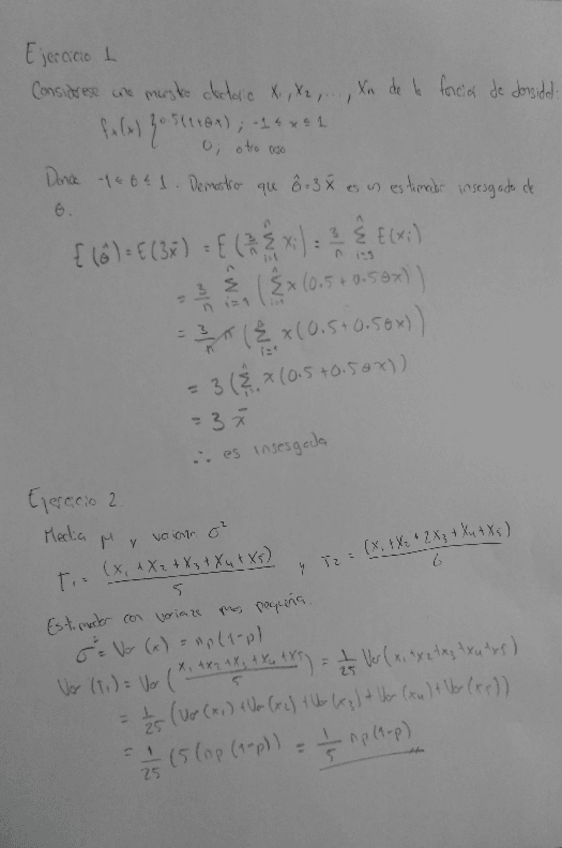 Ejercicio 1
Considerese una muestra aleatoria X₁, X₂, ..., Xn de la función de densidad:
fₓ(x) { 0.5(1+θx) ; -1 ≤ x ≤ 1
0; otro caso
Donde -1 ≤ θ ≤ 1. Demostrar que θ̂=3x̄ es un estimador insesgado de
θ.
E(θ̂) = E(3x̄) = E(3/n Σ xi) = 3/n Σ E(xi)
= 3/n Σ (Σ x(0.5+0.5θx))
= 3/n n (Σ x(0.5+0.5θx))
= 3 (Σ x(0.5+0.5θx))
= 3x̄
∴ es insesgada
Ejercicio 2.
Media μ y varianza σ²
T₁ = (x₁+x₂+x₃+x₄+x₅)/5 y T₂ = (x₁+x₂+2x₃+x₄+x₅)/6
Estimador con varianza mas pequeña.
σ² = Var(x) = np(1-p)
Var(T₁) = Var((x₁+x₂+x₃+x₄+x₅)/5) = 1/25 Var(x₁+x₂+x₃+x₄+x₅)
= 1/25 (Var(x₁)+Var(x₂)+Var(x₃)+Var(x₄)+Var(x₅))
= 1/25 (5(np(1-p)) = 1/5 np(1-p)